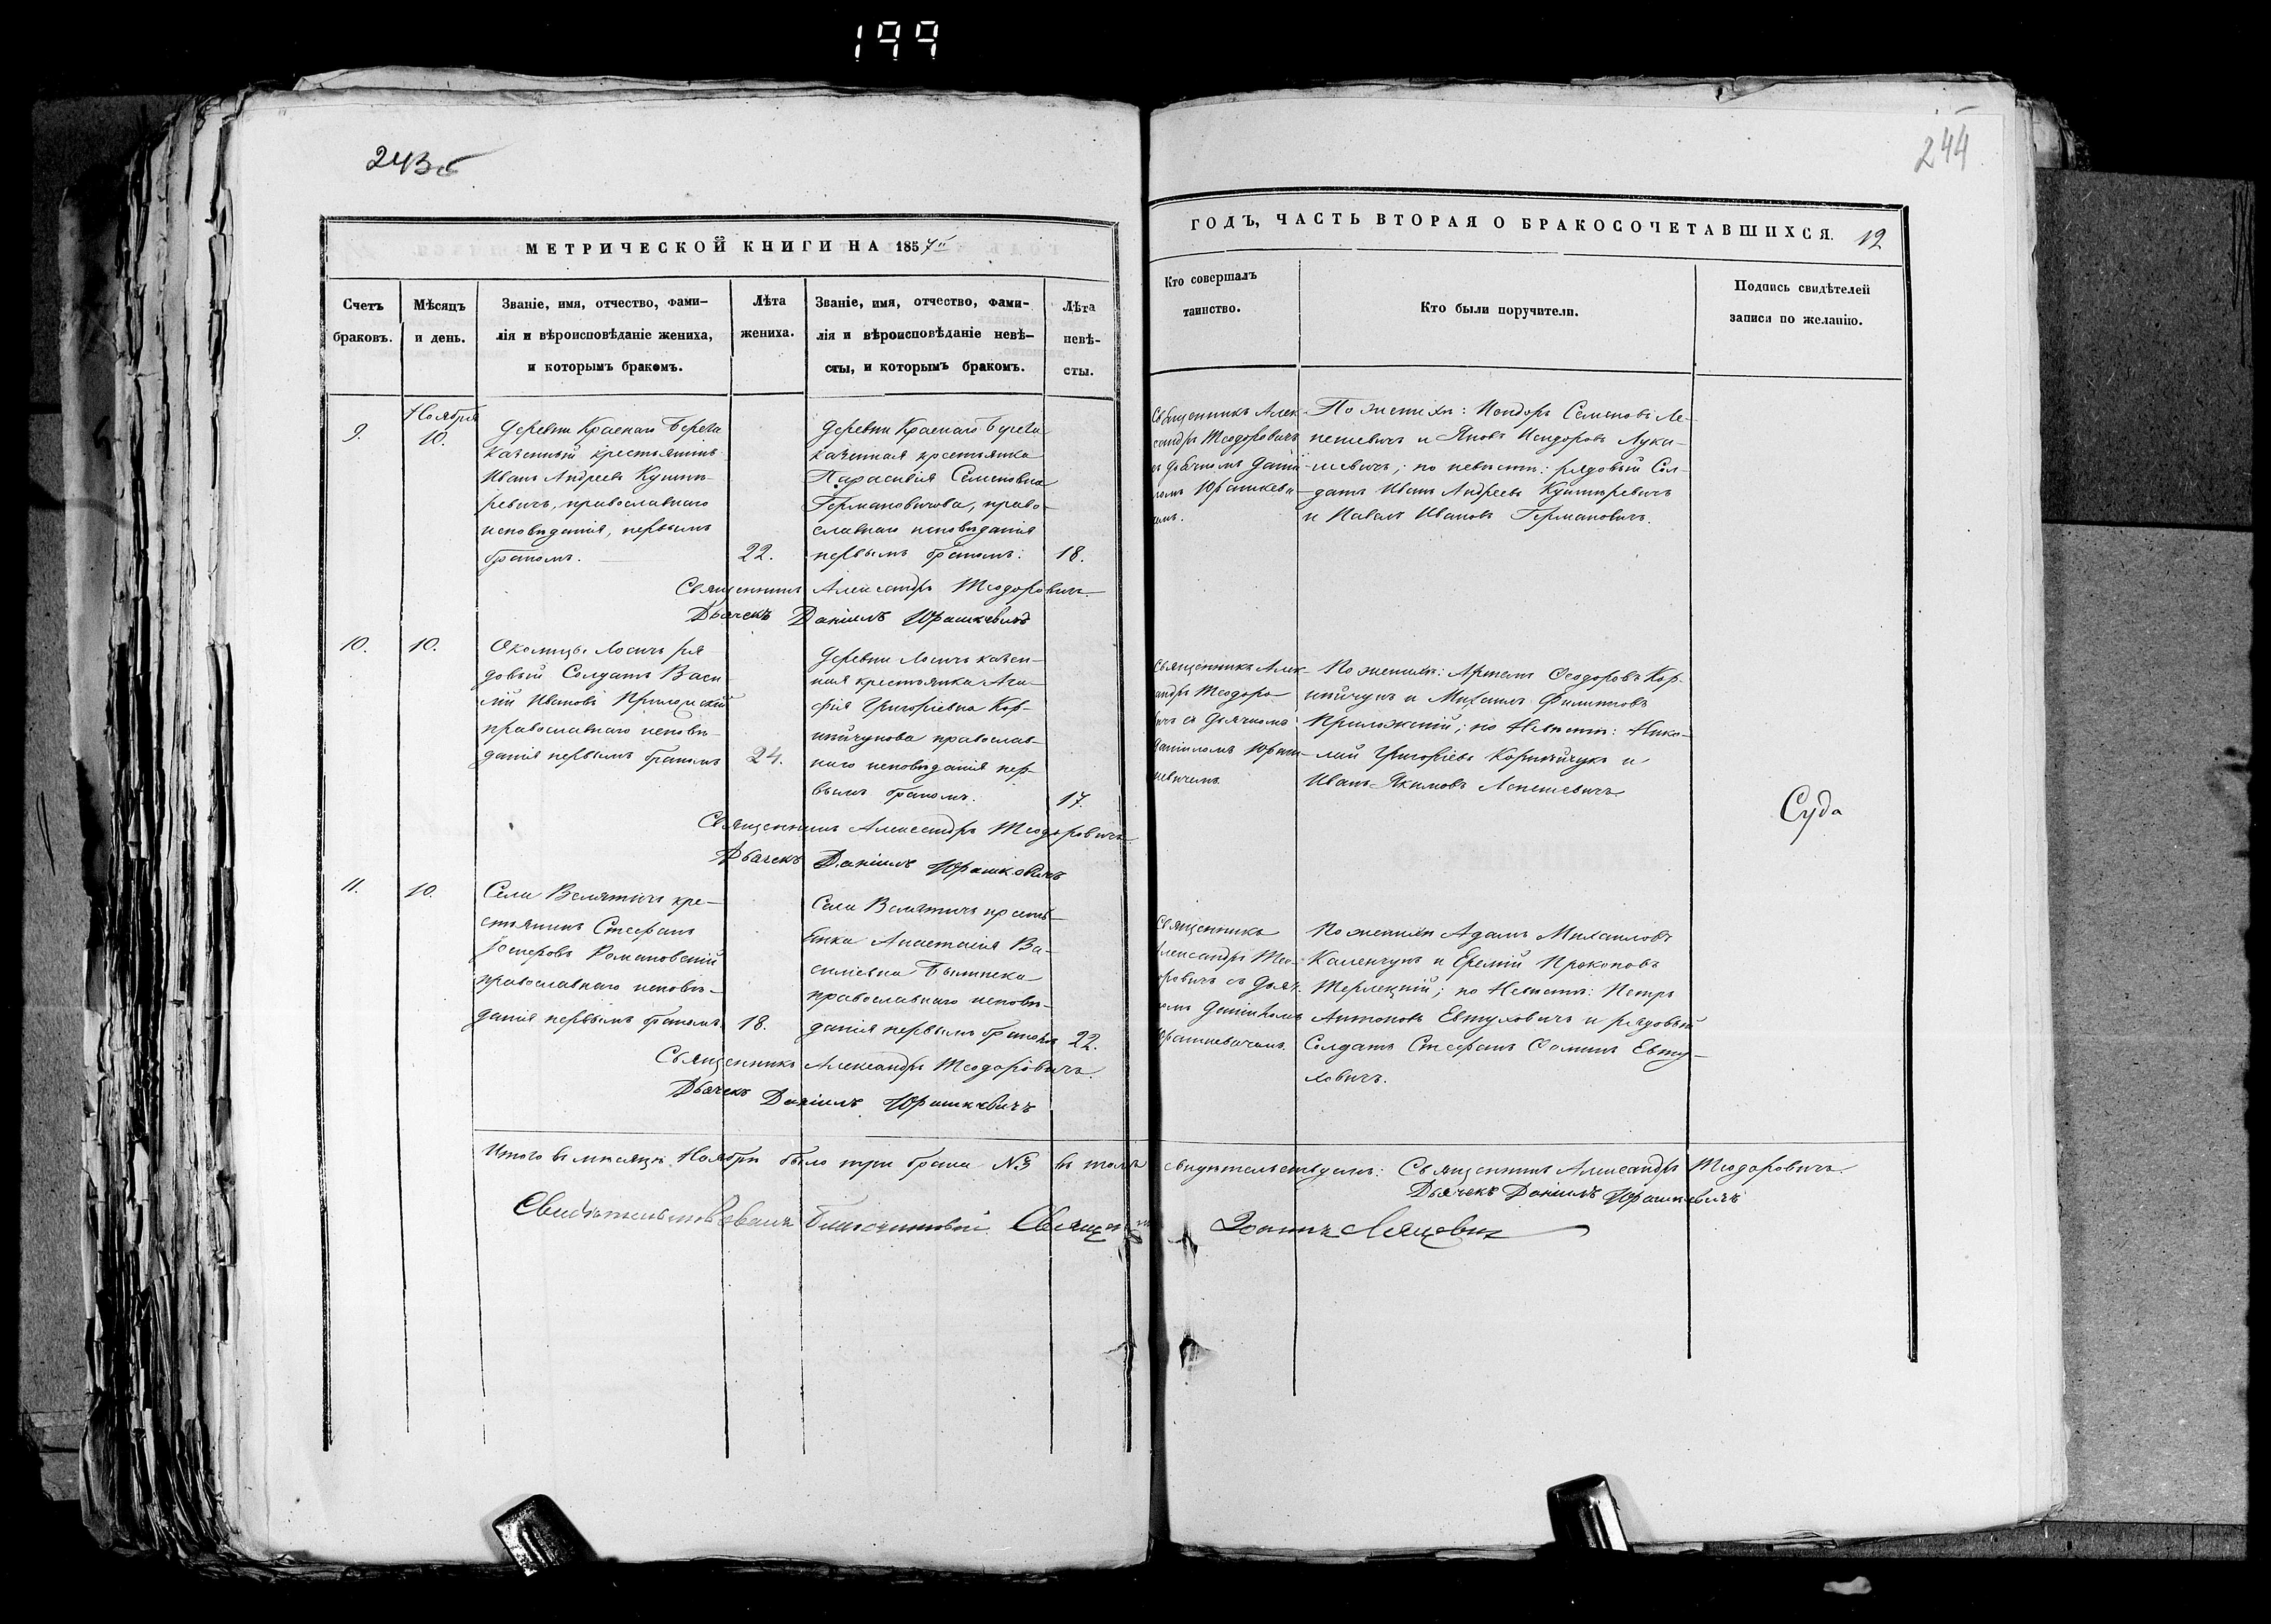 199
243об
244
МЕТРИЧЕСКОЙ КНИГИ НА 1857й
ГОДЪ, ЧАСТЬ ВТОРАЯ О БРАКОСОЧЕТАВШИХСЯ.
12
Счетъ
браковъ.
Мѣсяцъ
и день.
Званіе, имя, отчество, фами-
лія и вѣроисповѣданіе жениха,
и которымъ бракомъ.
Лѣта
жениха.
Званіе, имя, отчество, фами-
лія и вѣроисповѣданіе невѣ-
сты, и которымъ бракомъ.
Лѣта
невѣ-
сты.
Кто совершалъ
таинство.
Кто были поручители.
Подпись свидѣтелей
записи по желанію.
9.
Ноября
10.
Деревни Краснаго Берега
казенный крестьянинъ
Иванъ Андреевъ
православнаго
исповѣданія, первымъ
бракомъ.
22.
Деревни Краснаго Берега
казенная крестьянка
Параскевія Семеновна
Германовичова, право-
славнаго исповѣданія
первымъ бракомъ.
18.
Священникъ Алек-
сандръ Теодоровичъ
съ дьячкомъ Даніи-
ломъ Юрашкеви-
чемъ.
По женихѣ: Исидоръ Семеновъ Ле-
пешевичъ и Яковъ Исидоровъ Лука-
шевичъ; по невѣстѣ: рядовый Сол-
датъ Иванъ Андреевъ
и Павелъ Ивановъ Германовичъ.
Священникъ Александръ Теодоровичъ
Дьячекъ Даніилъ Юрашкевичъ
10.
10.
Околицы Лосичъ ря-
довый Солдатъ Васи-
лій Ивановъ
православнаго исповѣ-
данія первымъ бракомъ
24.
Деревни Лосичъ казен-
ная крестьянка Ага-
фія Григоріевна Кор-
православ-
наго исповѣданія пер-
вымъ бракомъ.
17.
Священникъ Алек-
андръ Теодоро-
вичъ съ дьячкомъ
Данииломъ Юраш-
кевичемъ.
По женихѣ: Артемъ Ѳеодоровъ Кор-
и Михаилъ Филиповъ
по Невѣстѣ: Нико-
лай Григоріевъ и
Иванъ Якимовъ Лепешевичъ.
Суда
Священникъ Александръ Теодоровичъ
Дьячекъ Даніилъ Юрашкевичъ
11.
10.
Села Велятичъ кре-
стьянинъ Стефанъ
Романовскій
православнаго исповѣ-
данія первымъ бракомъ.
18.
Села Велятичъ кресть-
янка Анастасія Ва-
силіевна
православнаго исповѣ-
данія первымъ бракомъ
22.
Священникъ
Александръ Тео-
доровичъ съ дьяч-
комъ Данииломъ
Юрашкевичемъ.
По женихѣ Адамъ Михаиловъ
Каленчукъ и Еремій Прокоповъ
Терлецкій; по Невѣстѣ: Петръ
Антоновъ Евтуховичъ и рядовый
Солдатъ Стефанъ Ѳоминъ Евту-
ховичъ.
Священникъ Александръ Теодоровичъ.
Дьячекъ Даніилъ Юрашкевичъ
Итого въ мѣсяцѣ Ноябрѣ было три брака №3 въ томъ свидѣтельствуемъ: Священникъ Александръ Теодоровичъ.
Дьячекъ Даніилъ Юрашкевичъ
Свидѣтельствовалъ Благочинный Священникъ Іоаннъ